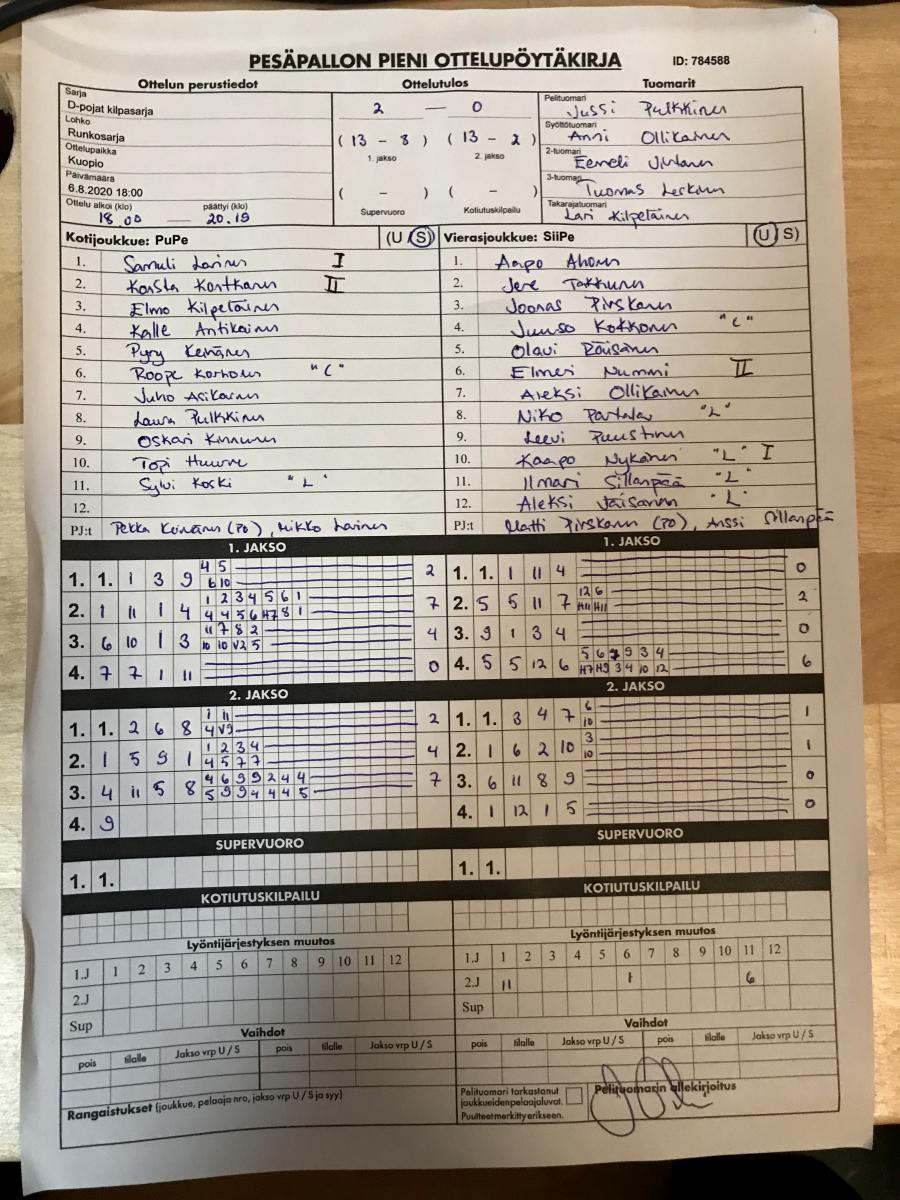 PESÄPALLON PIENI OTTELUPÖYTÄKIRJA ID: 784588
Ottelun perustiedot Ottelutulos Tuomarit
Sarja
D-pojat kilpasarja
Lohko
Runkosarja
Ottelupaikka
Kuopio
Päivämäärä
6.8.2020 18:00
Ottelu alkoi (klo) päättyi (klo)
18.00 — 20.19
2 — 0
(13 - 8) (13 - 2)
1. jakso 2. jakso
( - ) ( - )
Supervuoro Kotiutuskilpailu
Pelituomari
Jussi Pulkkinen
Syöttötuomari
Anni Ollikainen
2-tuomari
Eemeli
3-tuomari
Tuomas
Takarajatuomari
Lari Kilpeläinen
Kotijoukkue: PuPe (U S)
1. Samuli Lainen I
2. Konsta Kontkanen II
3. Elmo Kilpeläinen
4. Kalle Antikainen
5. Pyry Keinänen
6. Roope Korhonen "C"
7. Juho Asikainen
8. Laura Pulkkinen
9. Oskari Kinnunen
10. Topi Huurre
11. Sylvi Koski "L"
12.
PJ:t Pekka Keinänen (PO), Mikko Lainen
Vierasjoukkue: SiiPe (U S)
1. Aapo Ahonen
2. Jere Takkunen
3. Joonas Pirskanen
4. Juuso Kokkonen "C"
5. Olavi Räisänen
6. Elmeri Nummi II
7. Aleksi Ollikainen
8. Niko Partala "L"
9. Leevi Puustinen
10. Kaapo Nykänen "L" I
11. Ilmari Sillanpää "L"
12. Aleksi Väisänen "L"
PJ:t Matti Pirskanen (PO), Anssi Sillanpää
1. JAKSO
4 5
1. 1. 1 3 9 2
6 10
1 2 3 4 5 6 1
2. 1 11 1 4 7
4 4 5 6 H7 8 1
11 7 8 2
3. 6 10 1 3 4
10 10 V2 5
4. 7 7 1 11 0
1. JAKSO
1. 1. 1 11 4 0
12 6
2. 5 5 11 7 2
H11 H11
3. 9 1 3 4 0
5 6 7 9 3 4
4. 5 5 12 6 6
H7 H9 3 4 10 12
2. JAKSO
1 11
1. 1. 2 6 8 2
4 V9
1 2 3 4
2. 1 5 9 1 4
4 5 7 7
4 6 9 9 2 4 4
3. 4 11 5 8 7
5 9 9 4 4 4 5
4. 9
2. JAKSO
6
1. 1. 3 4 7 1
10
3
2. 1 6 2 10 1
10
3. 6 11 8 9 0
4. 1 12 1 5 0
SUPERVUORO
1. 1.
SUPERVUORO
1. 1.
KOTIUTUSKILPAILU
KOTIUTUSKILPAILU
Lyöntijärjestyksen muutos
1.J 1 2 3 4 5 6 7 8 9 10 11 12
2.J
Sup
Lyöntijärjestyksen muutos
1.J 1 2 3 4 5 6 7 8 9 10 11 12
2.J 11 1 6
Sup
Vaihdot
pois tilalle Jakso vrp U / S pois tilalle Jakso vrp U / S
Vaihdot
pois tilalle Jakso vrp U / S pois tilalle Jakso vrp U / S
Rangaistukset (joukkue, pelaaja nro, jakso vrp U / S ja syy)
Pelituomari tarkastanut
joukkueidenpelaajaluvat.
Puutteetmerkitty erikseen.
Pelituomarin allekirjoitus